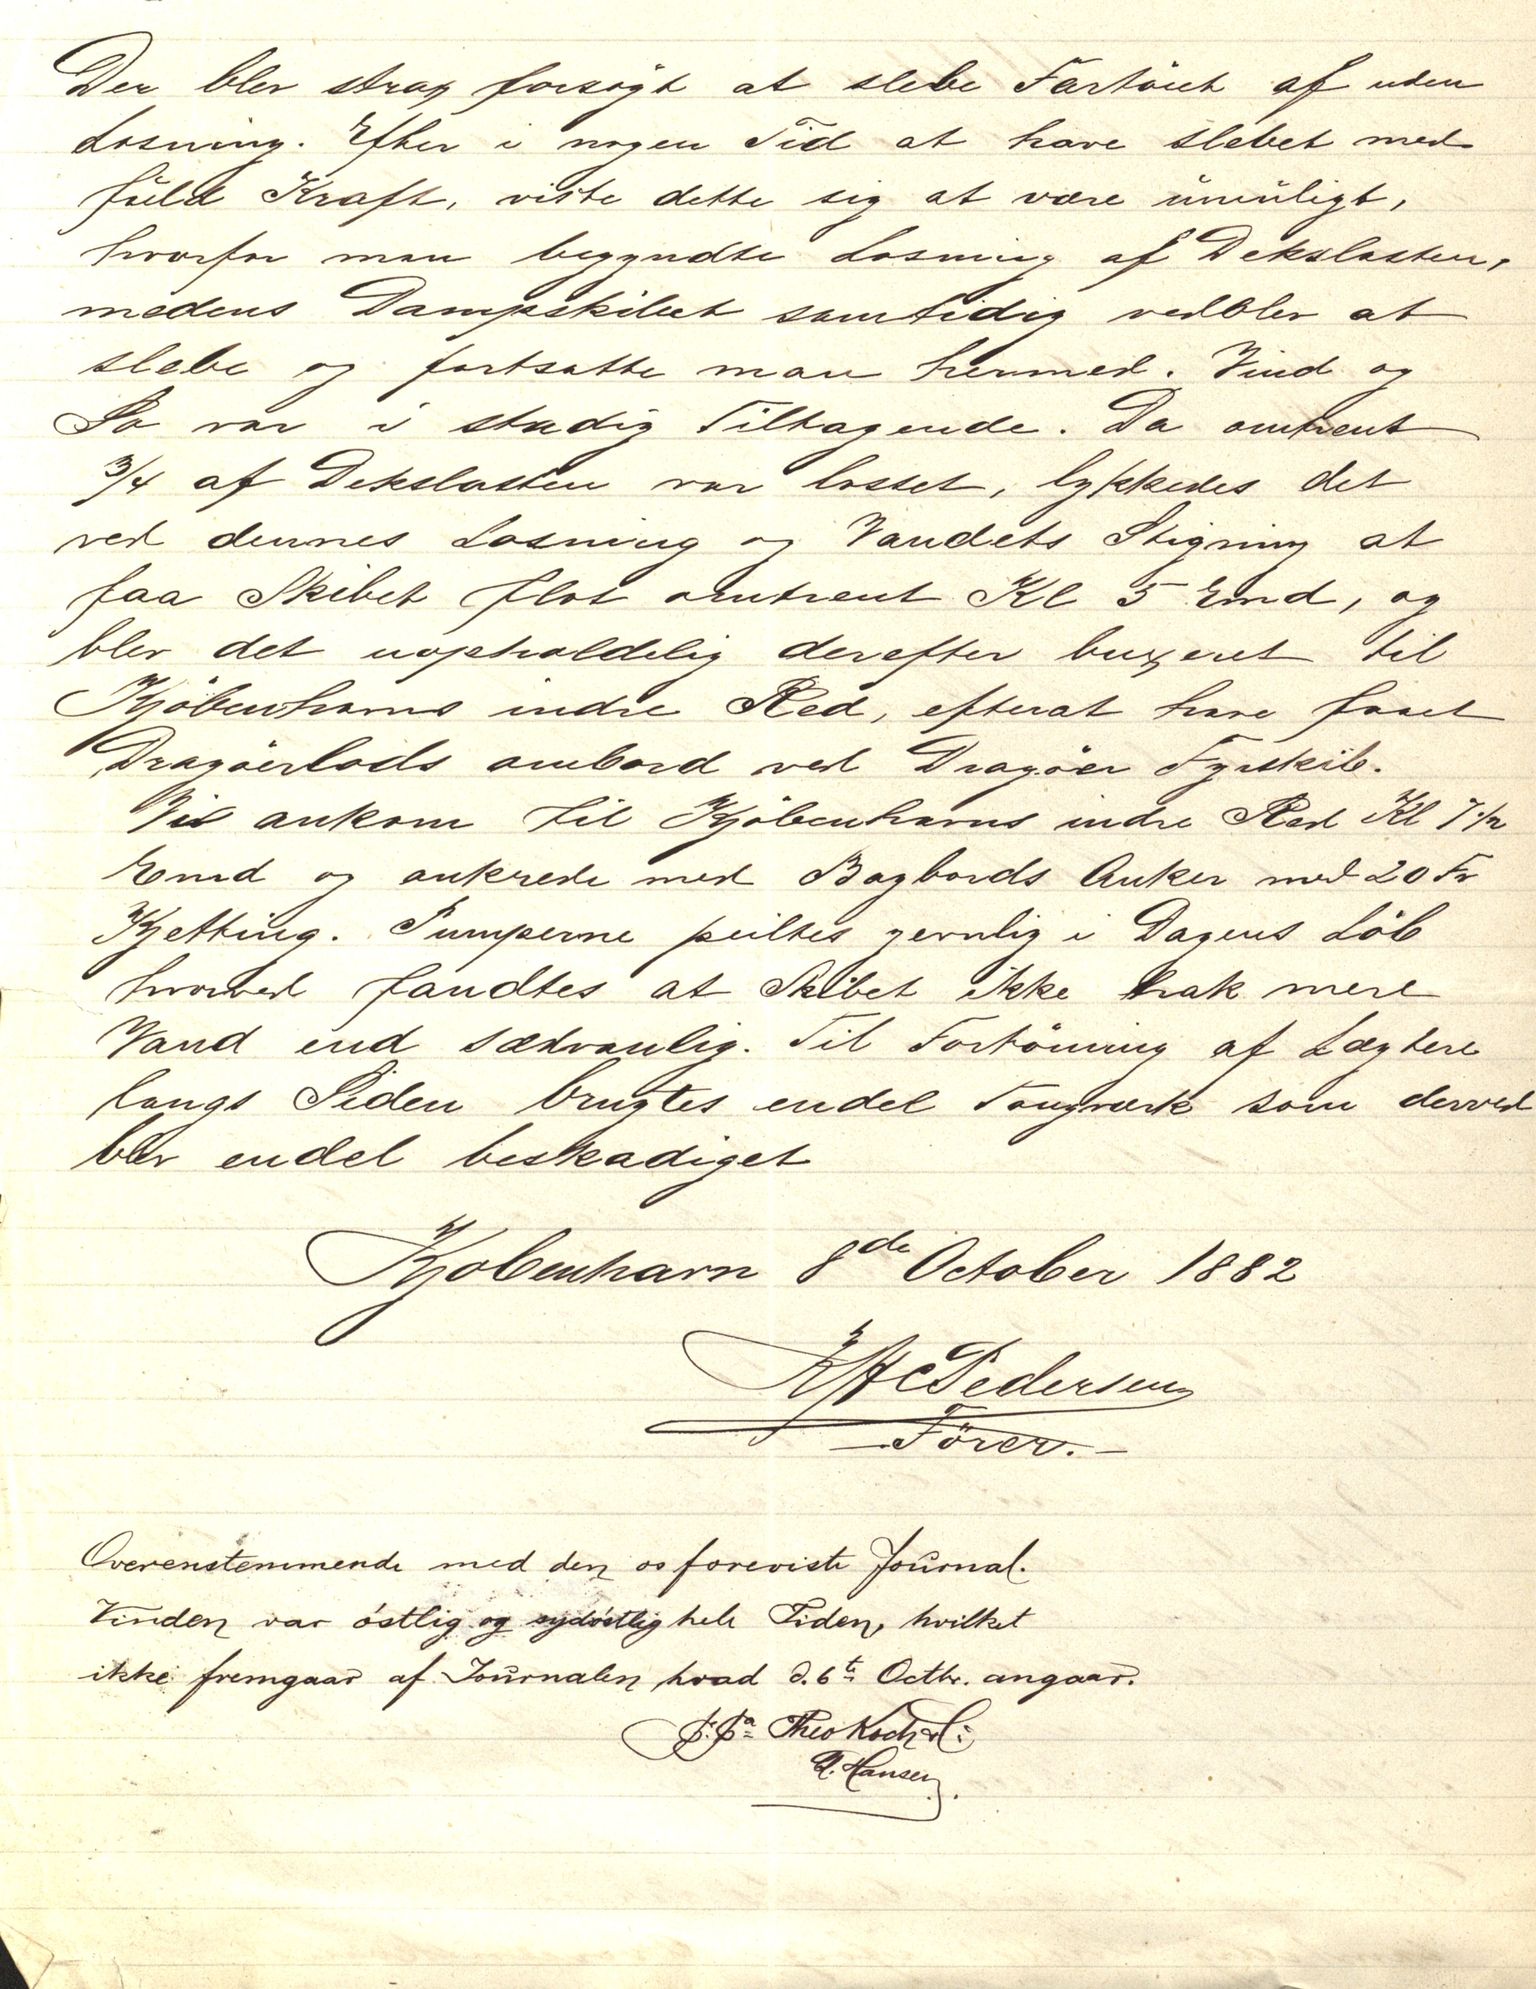 Der blev strax forsøgt at slebe Fartöiet af uden
Losning. Efter i nogen Tid at have slebet med
fuld Kraft, viste dette sig at være umuligt,
hvorfor man begyndte Losning af Dekslasten,
medens Dampskibet samtidig vedblev at
slebe og fortsatte man hermed. Vind og
Sø var i stadig Tiltagende. Da omtrent
3/4 af Dekslasten var losset, lykkedes det
ved dennes Losning og Vandets Stigning at
faa Skibet flot omtrent Kl 5 Emd, og
blev det uopholdelig derefter buxeret til
Kjöbenhavns indre Red, efterat have faaet
Dragöerlods ombord ved Dragöer Fyrskib.
Vi ankom til Kjöbenhavns indre Red Kl 7 1/2
Emd og ankrede med Bagbords Anker med 20 Fv
Kjetting. Pumperne peiltes jevnlig i Dagens Löb
hvorved fandtes at Skibet ikke trak mere
Vand end sædvanlig. Til Fortöining af Lægtere
langs Siden brugtes endel Tougværk som derved
blev endel beskadiget
Kjobenhavn 8de October 1882
K H C Pedersen
Förer.
Overenstemmende med den os foreviste Journal.
Vinden var östlig og sydöstlig hele Tiden, hvilket
ikke fremgaar af Journalen hvad d. 6te Octbr. angaar.
p. pa Theo Koch & C:
Hansen.